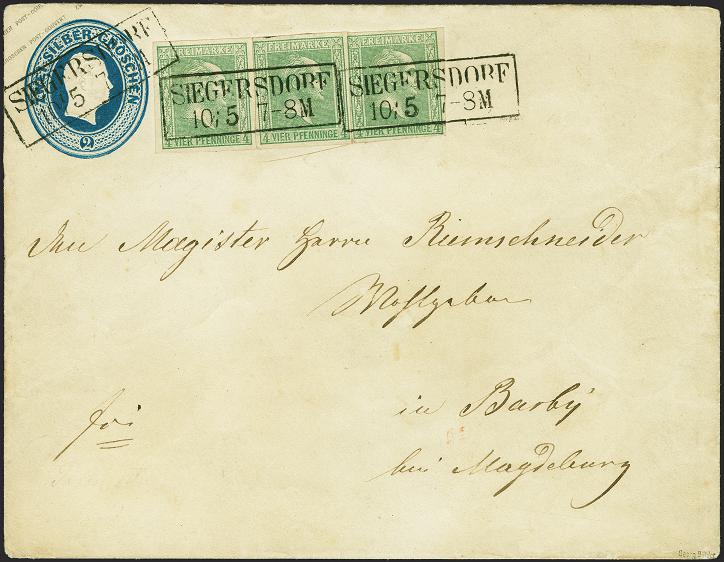 ZWEI SILBERGROSCHEN
2
SIEGERSDORF
5 7 M
FREIMARKE FREIMARKE FREIMARKE
SIEGERSDORF SIEGERSDORF
10/5 7-8M 10/5 7-8M
4 VIER PFENNINGE 4 4 VIER PFENNINGE 4 4 VIER PFENNINGE 4
Magister Herrn Riemschneider
Wohlgeboren
frei
in Barby
bei Magdeburg